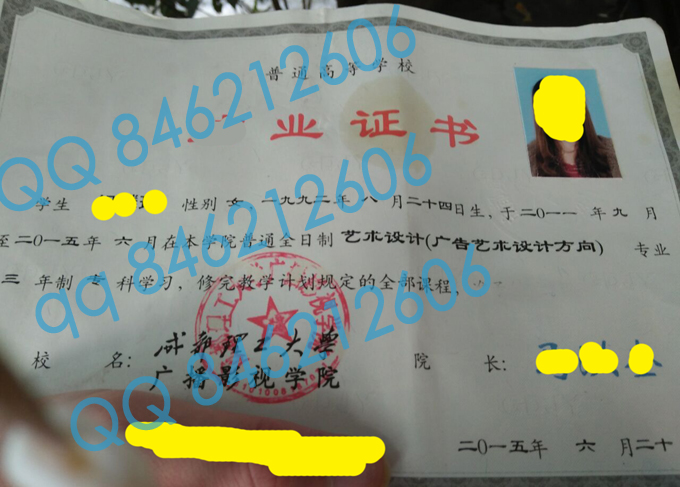 普通高等学校
业证书
QQ 846212606
学生 性别 女 一九九二年 八 月二十四日生，于二〇一一 年 九 月
QQ 846212606
至二〇一五年 六 月在本学院普通全日制 艺术设计(广告艺术设计方向) 专业
三 年制 专 科学习，修完教学计划规定的全部课程，
qq 846212606
校 名： 成都理工大学 院 长：
广播影视学院
QQ 846212606
二〇一五年 六 月二十